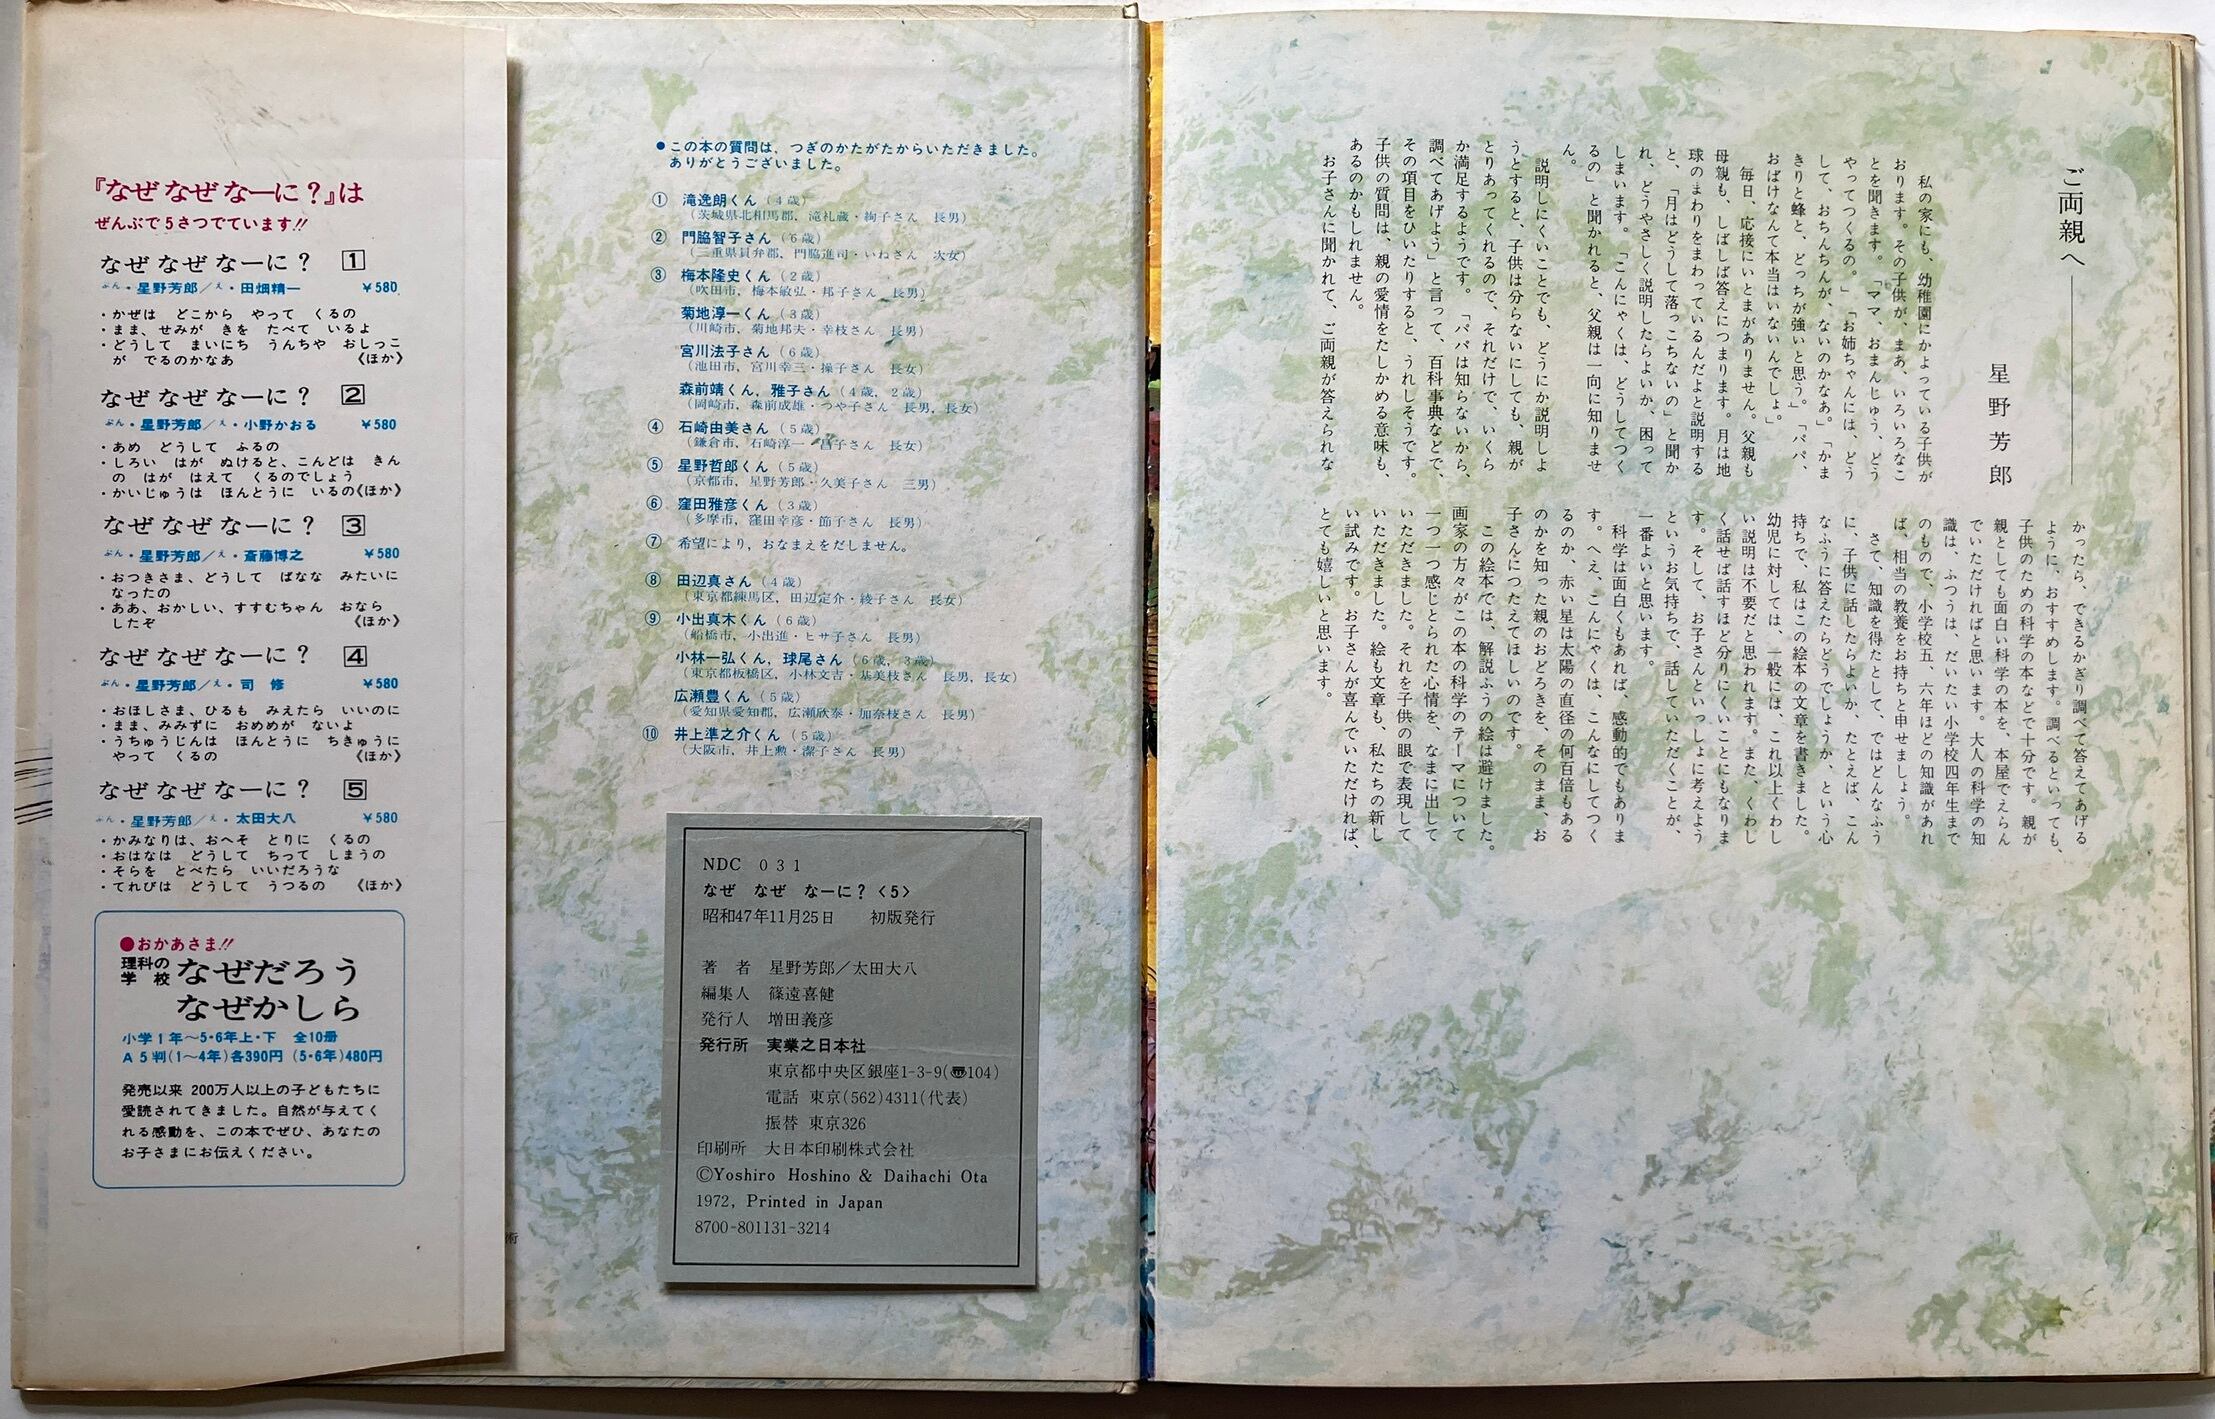 『なぜ なぜ なーに？』は
ぜんぶで5さつでています!!
なぜ なぜ なーに？ 1
ぶん・星野芳郎／え・田畑精一 ￥580
・かぜは どこから やって くるの
・まま、せみが きを たべて いるよ
・どうして まいにち うんちや おしっこ
が でるのかなあ 《ほか》
なぜ なぜ なーに？ 2
ぶん・星野芳郎／え・小野かおる ￥580
・あめ どうして ふるの
・しろい はが ぬけると、こんどは きん
の はが はえて くるのでしょう
・かいじゅうは ほんとうに いるの《ほか》
なぜ なぜ なーに？ 3
ぶん・星野芳郎／え・斎藤博之 ￥580
・おつきさま、どうして ばなな みたいに
なったの
・ああ、おかしい、すすむちゃん おなら
したぞ 《ほか》
なぜ なぜ なーに？ 4
ぶん・星野芳郎／え・司 修 ￥580
・おほしさま、ひるも みえたら いいのに
・まま、みみずに おめめが ないよ
・うちゅうじんは ほんとうに ちきゅうに
やって くるの 《ほか》
なぜ なぜ なーに？ 5
ぶん・星野芳郎／え・太田大八 ￥580
・かみなりは、おへそ とりに くるの
・おはなは どうして ちって しまうの
・そらを とべたら いいだろうな
・てれびは どうして うつるの 《ほか》
●おかあさま!!
理科の学校 なぜだろう
なぜかしら
小学1年～5・6年上・下 全10册
A5判(1～4年)各390円 (5・6年)480円
発売以来 200万人以上の子どもたちに
愛読されてきました。自然が与えてく
れる感動を、この本でぜひ、あなたの
お子さまにお伝えください。
●この本の質問は、つぎのかたがたからいただきました。
ありがとうございました。
① 滝逸朗くん（4歳）
（茨城県北相馬郡、滝礼蔵・絢子さん 長男）
② 門脇智子さん（6歳）
（三重県員弁郡、門脇進司・いねさん 次女）
③ 梅本隆史くん（2歳）
（吹田市、梅本敏弘・邦子さん 長男）
菊地淳一くん（3歳）
（川崎市、菊地邦夫・幸枝さん 長男）
宮川法子さん（6歳）
（池田市、宮川幸三・操子さん 長女）
森前靖くん，雅子さん（4歳，2歳）
（岡崎市、森前成雄・つや子さん 長男，長女）
④ 石崎由美さん（5歳）
（鎌倉市、石崎淳一・昌子さん 長女）
⑤ 星野哲郎くん（5歳）
（京都市、星野芳郎・久美子さん 三男）
⑥ 窪田雅彦くん（3歳）
（多摩市、窪田幸彦・節子さん 長男）
⑦ 希望により，おなまえをだしません。
⑧ 田辺真さん（4歳）
（東京都練馬区，田辺定介・綾子さん 長女）
⑨ 小出真木くん（6歳）
（船橋市，小出進・ヒサ子さん 長男）
小林一弘くん，球尾さん（6歳，3歳）
（東京都板橋区，小林文吉・基美枝さん 長男，長女）
広瀬豊くん（5歳）
（愛知県愛知郡，広瀬欣泰・加奈枝さん 長男）
⑩ 井上準之介くん（5歳）
（大阪市，井上勲・潔子さん 長男）
NDC 031
なぜ なぜ なーに？〈5〉
昭和47年11月25日 初版発行
著 者 星野芳郎／太田大八
編集人 篠遠喜健
発行人 増田義彦
発行所 実業之日本社
東京都中央区銀座1-3-9(〠104)
電話 東京(562)4311(代表)
振替 東京326
印刷所 大日本印刷株式会社
©Yoshiro Hoshino & Daihachi Ota
1972, Printed in Japan
8700-801131-3214
術
ご両親へ――
星野芳郎
私の家にも、幼稚園にかよっている子供が
おります。その子供が、まあ、いろいろなこ
とを聞きます。「ママ、おまんじゅう、どう
やってつくるの。」「お姉ちゃんには、どう
して、おちんちんが、ないのかなあ。「かま
きりと蜂と、どっちが強いと思う。」「パパ、
おばけなんて本当はいないんでしょ。」
毎日、応接にいとまがありません。父親も
母親も、しばしば答えにつまります。月は地
球のまわりをまわっているんだよと説明する
と、「月はどうして落っこちないの」と聞か
れ、どうやさしく説明したらよいか、困って
しまいます。「こんにゃくは、どうしてつく
るの」と聞かれると、父親は一向に知りませ
ん。
説明しにくいことでも、どうにか説明しよ
うとすると、子供は分らないにしても、親が
とりあってくれるので、それだけで、いくら
か満足するようです。「パパは知らないから、
調べてあげよう」と言って、百科事典などで、
その項目をひいたりすると、うれしそうです。
子供の質問は、親の愛情をたしかめる意味も、
あるのかもしれません。
お子さんに聞かれて、ご両親が答えられな
かったら、できるかぎり調べて答えてあげる
ように、おすすめします。調べるといっても、
子供のための科学の本などで十分です。親が
親としても面白い科学の本を、本屋でえらん
でいただければと思います。大人の科学の知
識は、ふつうは、だいたい小学校四年生まで
のもので、小学校五、六年ほどの知識があれ
ば、相当の教養をお持ちと申せましょう。
さて、知識を得たとして、ではどんなふう
に、子供に話したらよいか、たとえば、こん
なふうに答えたらどうでしょうか、という心
持ちで、私はこの絵本の文章を書きました。
幼児に対しては、一般には、これ以上くわし
い説明は不要だと思われます。また、くわし
く話せば話すほど分りにくいことにもなりま
す。そして、お子さんといっしょに考えよう
というお気持ちで、話していただくことが、
一番よいと思います。
科学は面白くもあれば、感動的でもありま
す。へえ、こんにゃくは、こんなにしてつく
るのか、赤い星は太陽の直径の何百倍もある
のかを知った親のおどろきを、そのまま、お
子さんにつたえてほしいのです。
この絵本では、解説ふうの絵は避けました。
画家の方々がこの本の科学のテーマについて
一つ一つ感じとられた心情を、なまに出して
いただきました。それを子供の眼で表現して
いただきました。絵も文章も、私たちの新し
い試みです。お子さんが喜んでいただければ、
とても嬉しいと思います。